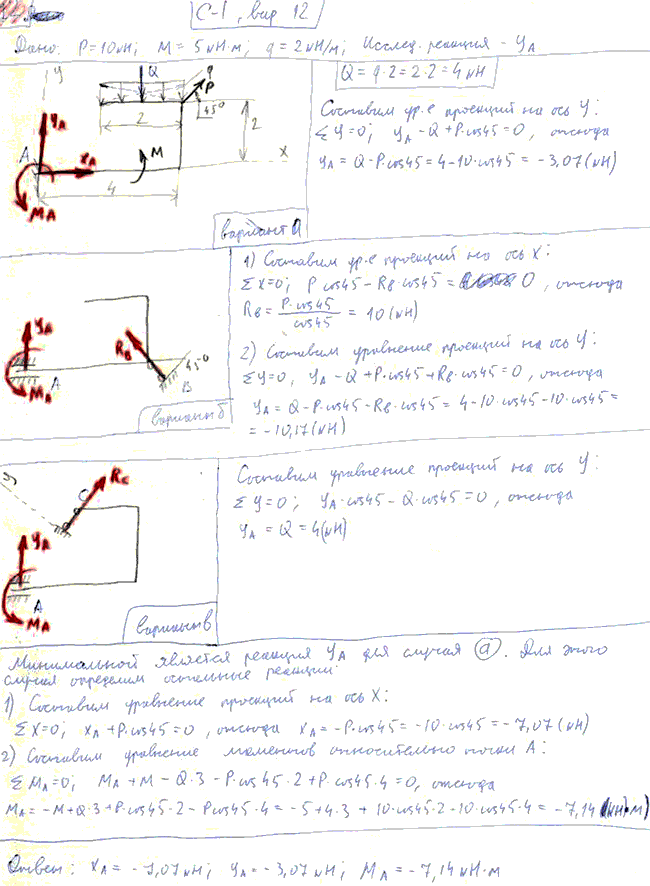 С-1, вар 12
Дано: P=10кН; M=5кН·м; q=2кН/м; Исслед. реакция - YA
Q = q·2 = 2·2 = 4 кН
y
Q
q
P
45°
2
2
YA
A
XA
M
x
4
MA
вариант а
Составим ур-е проекций на ось Y:
ΣY=0; YA-Q+P·cos45=0, отсюда
YA = Q-P·cos45=4-10·cos45 = -3,07(кН)
1) Составим ур-е проекций на ось X:
ΣX=0; P cos45-RB·cos45 = 0, отсюда
RB = P·cos45/cos45 = 10(кН)
2) Составим уравнение проекций на ось Y:
ΣY=0, YA-Q+P·cos45+RB·cos45=0, отсюда
YA = Q-P·cos45-RB·cos45=4-10·cos45-10·cos45=
= -10,17(кН)
YA
RB
45°
A
B
MA
вариант б
Составим уравнение проекций на ось Y:
ΣY=0; YA·cos45-Q·cos45=0, отсюда
YA = Q = 4(кН)
y
C
RC
YA
A
MA
вариант в
Минимальной является реакция YA для случая а. Для этого
случая определим остальные реакции:
1) Составим уравнение проекций на ось X:
ΣX=0; XA+P·cos45=0, отсюда XA=-P·cos45=-10·cos45=-7,07(кН)
2) Составим уравнение моментов относительно точки A:
ΣMA=0; MA+M-Q·3-P·cos45·2+P·cos45·4=0, отсюда
MA=-M+Q·3+P·cos45·2-Pcos45·4=-5+4·3+10·cos45·2-10·cos45·4=-7,14(кН·м)
Ответ: XA=-7,07кН; YA=-3,07кН; MA=-7,14кН·м